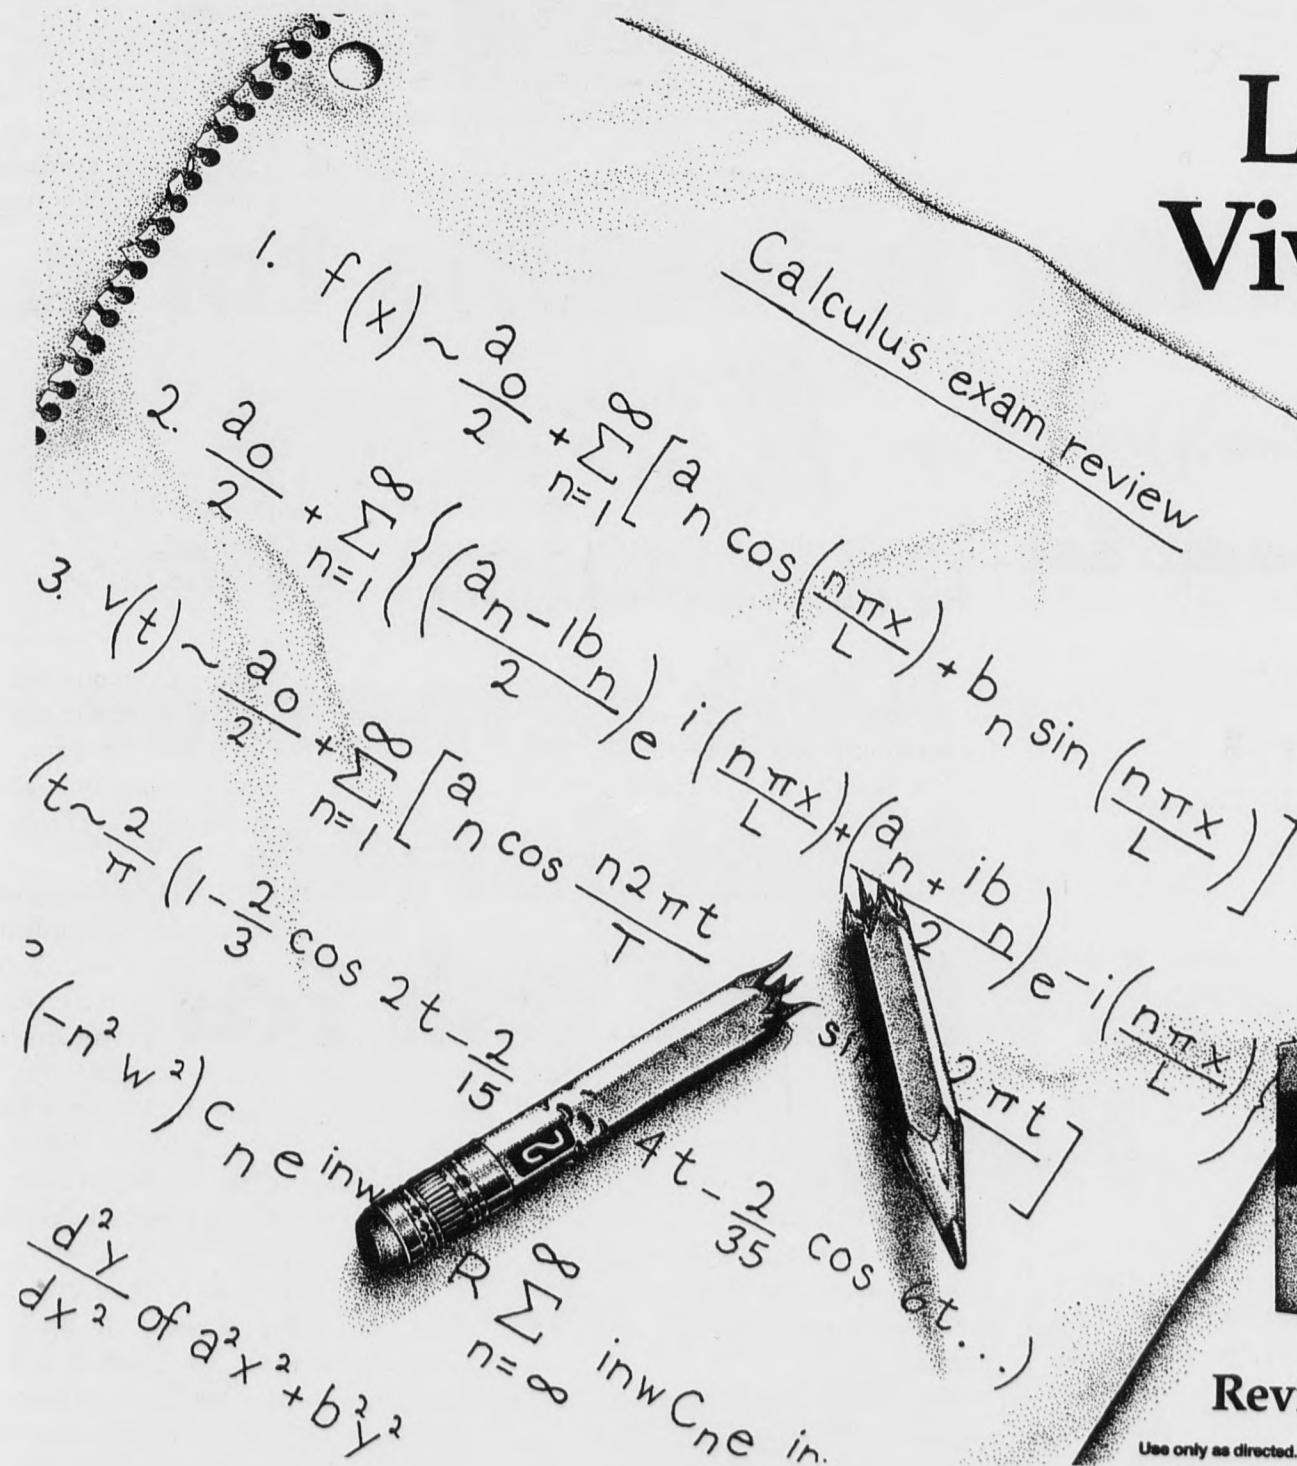 L
Viv
Calculus exam review
1. f(x) ~ a₀/2 + ∑ n=1 ∞ [a n cos (nπx/L) + b n sin (nπx/L)]
2. a₀/2 + ∑ n=1 ∞ {(a n - ib n / 2) e i(nπx/L) + (a n + ib n / 2) e -i(nπx/L)}
3. v(t) ~ a₀/2 + ∑ n=1 ∞ [a n cos n2πt/T si 2πt]
(t ~ 2/π (1 - 2/3 cos 2t - 2/15 4t - 2/35 cos 6t...)
(-n²w²) C n e inw
R ∑ n=∞ ∞ inw C n e in
d²y/dx² of a²x² + b²y²
2
Rev
Use only as directed.